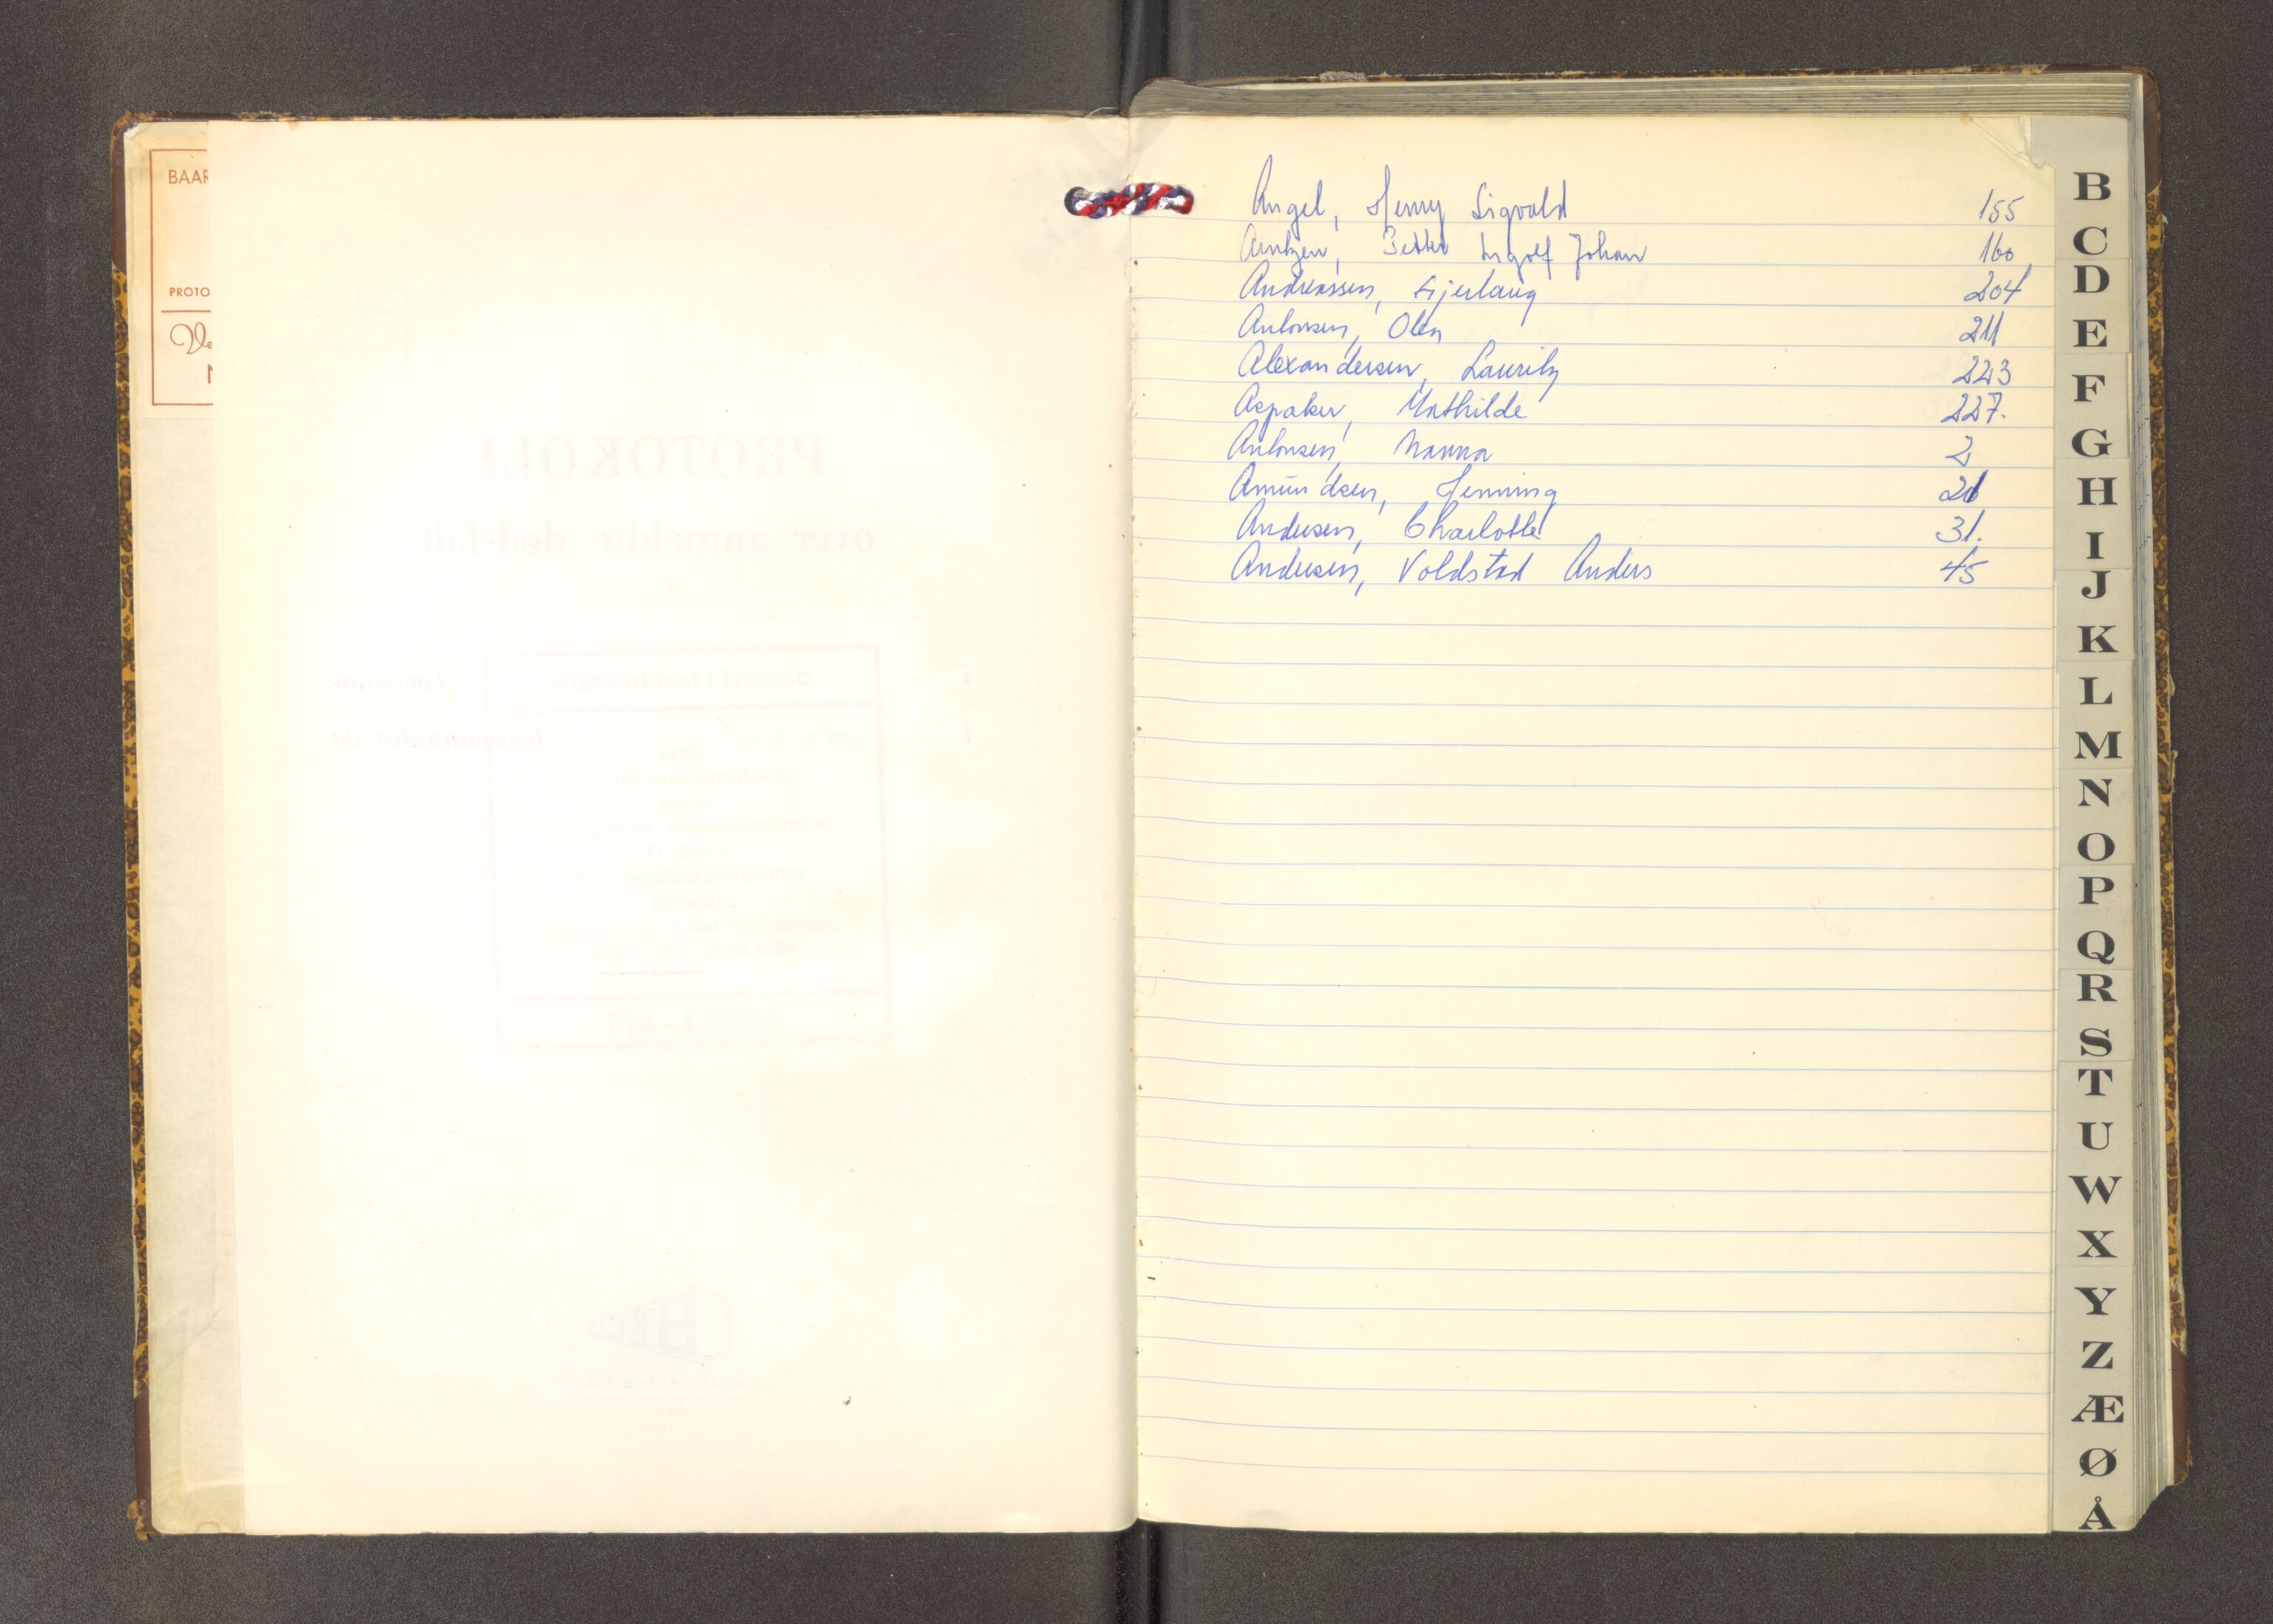 BAAR
PROTO
PROTOKOLL
over anmeldte dødsfall
Statsarkivet i Tromsø
kommune
lensmannsdistrikt
Angel, Henry Sigvald 155
Arntzen, Petter Ingolf Johan 160
Andreassen, Gjerlaug 204
Antonsen, Olea 211
Alexandersen, Lauritz 223
Aspaker, Mathilde 227.
Antonsen, Nanna 2
Amundsen, Henning 21
Andersen, Charlotte 31.
Andersen, Voldstad Anders 45
B
C
D
E
F
G
H
I
J
K
L
M
N
O
P
Q
R
S
T
U
W
X
Y
Z
Æ
Ø
Å